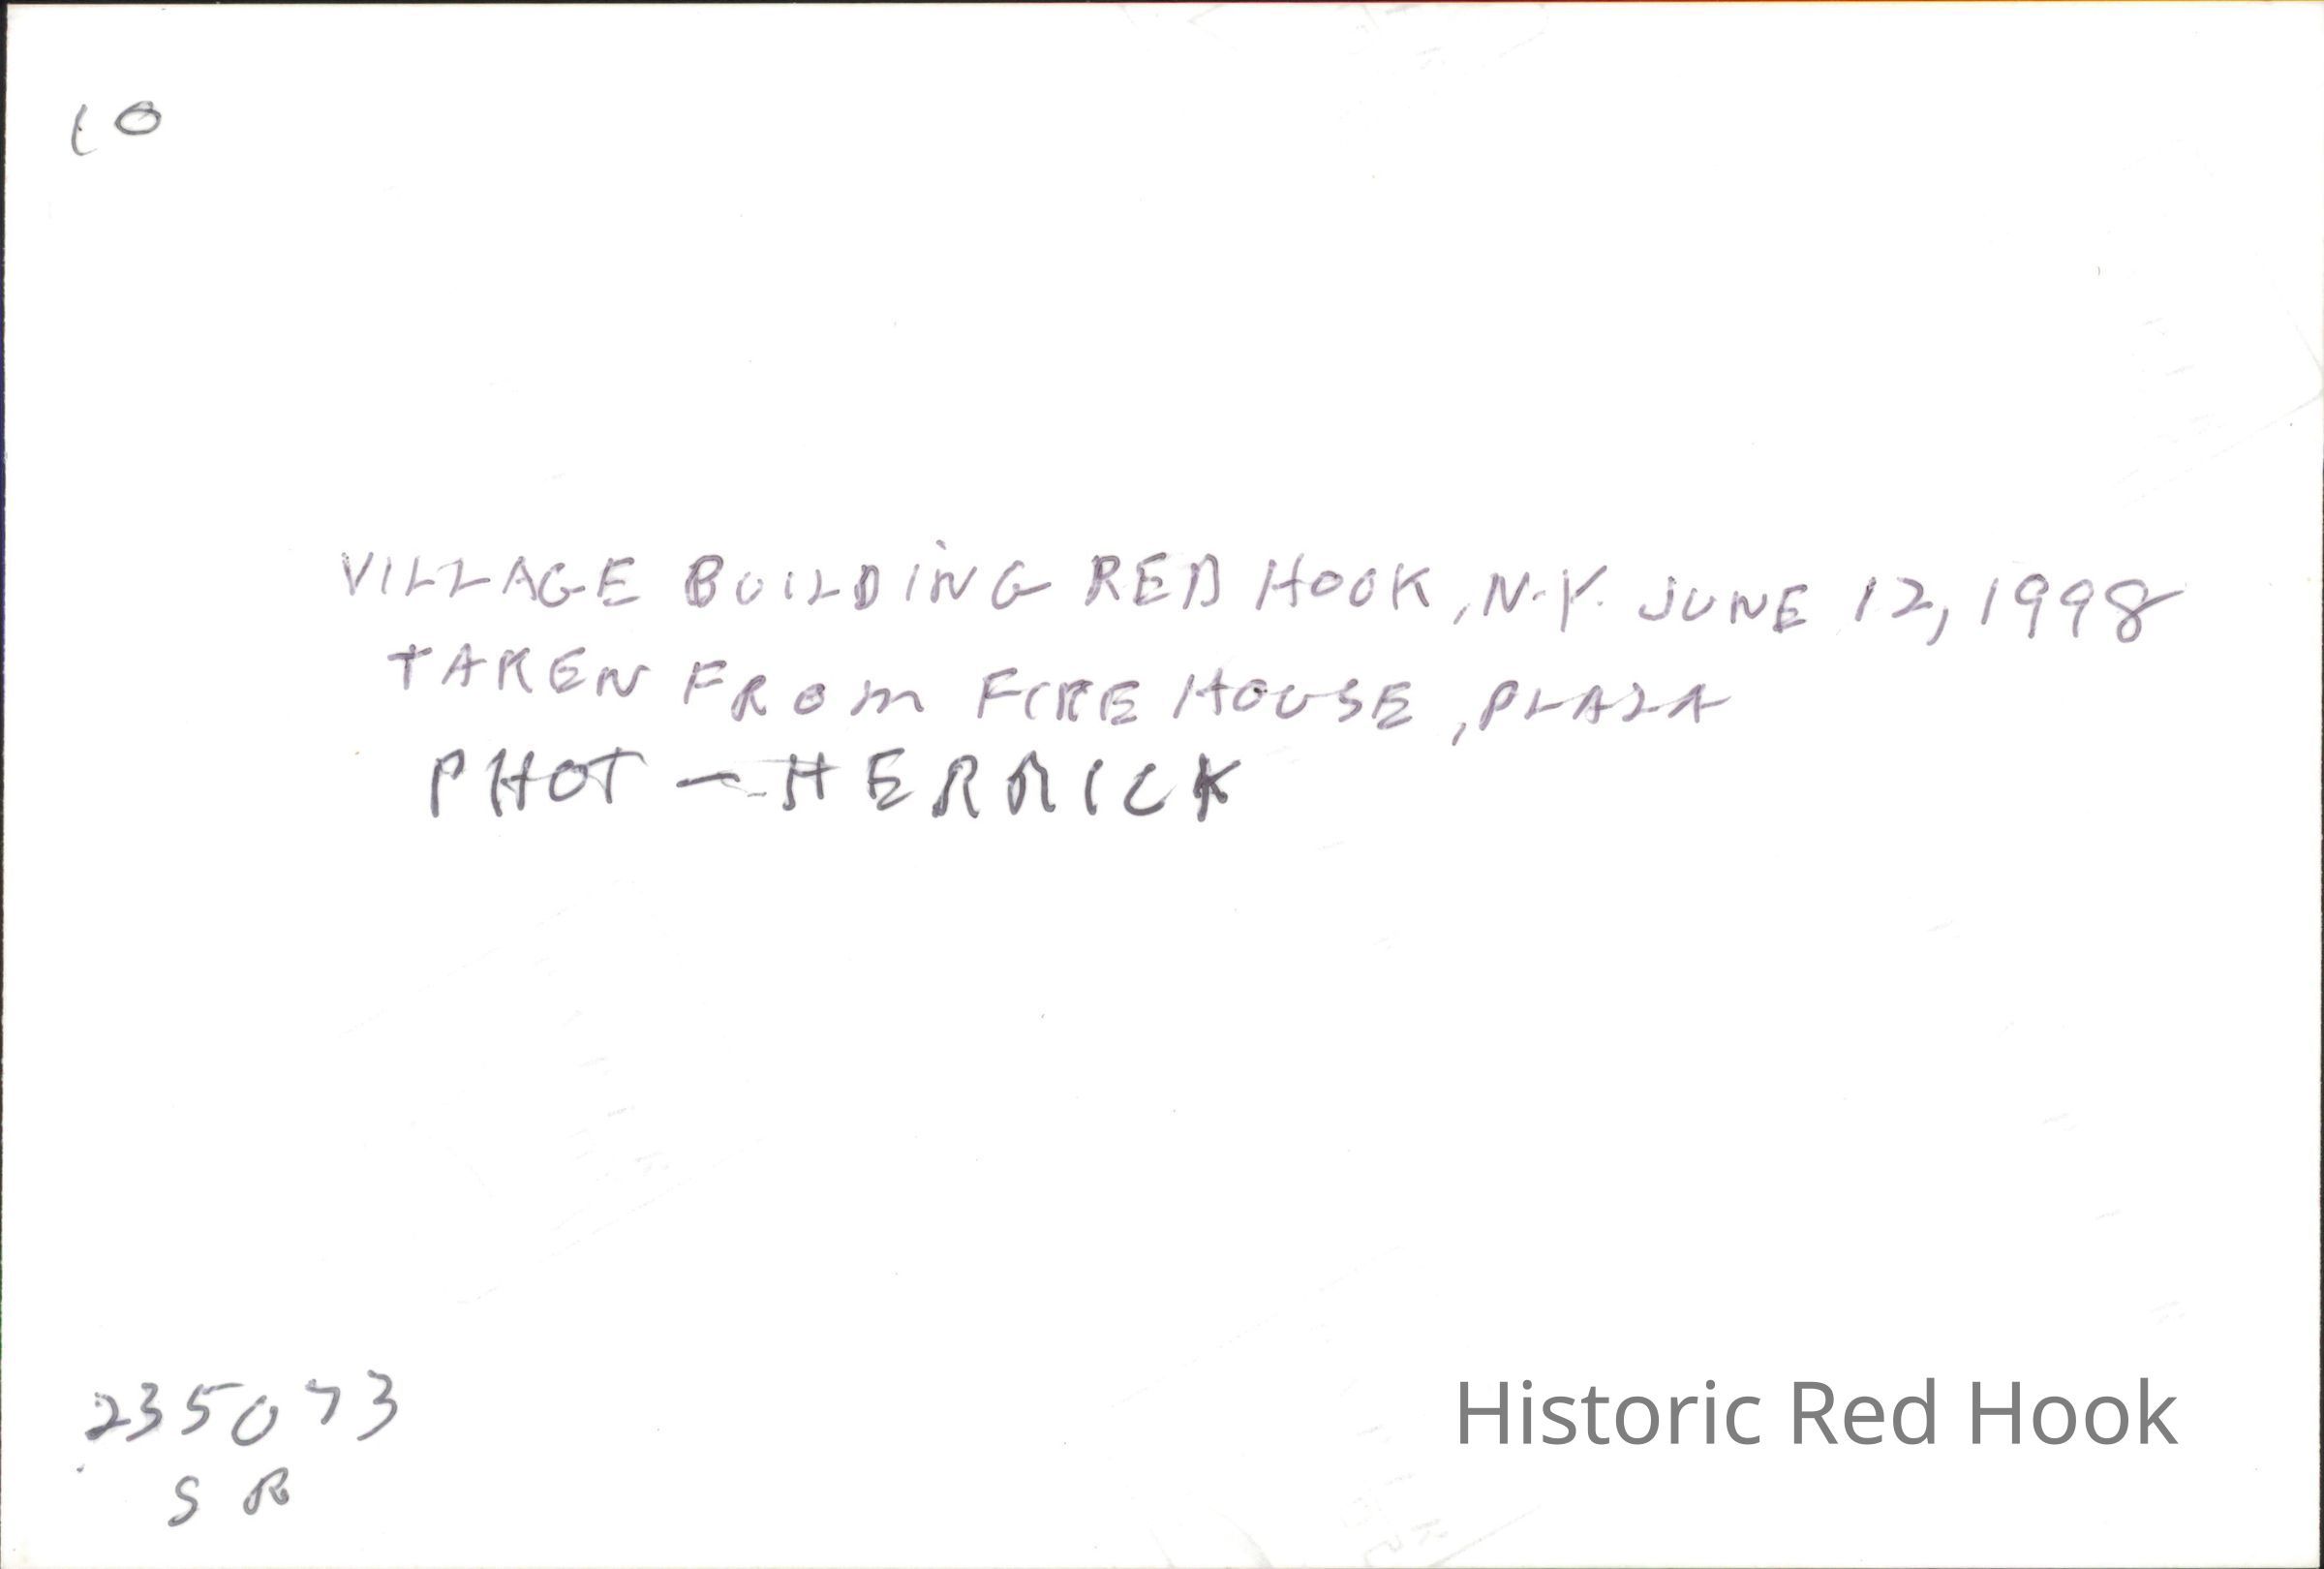 10
VILLAGE BUILDING RED HOOK, N.Y. JUNE 12, 1998
TAKEN FROM FIRE HOUSE, PLAZA
PHOT - HERRICK
235073
SR
Historic Red Hook